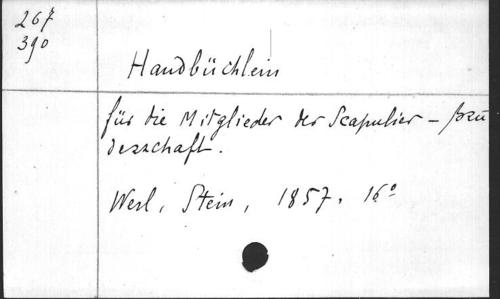 267
390
Handbüchlein
für die Mitglieder der Scapulier - bru
derschaft.
Werl, Stein, 1857. 16°